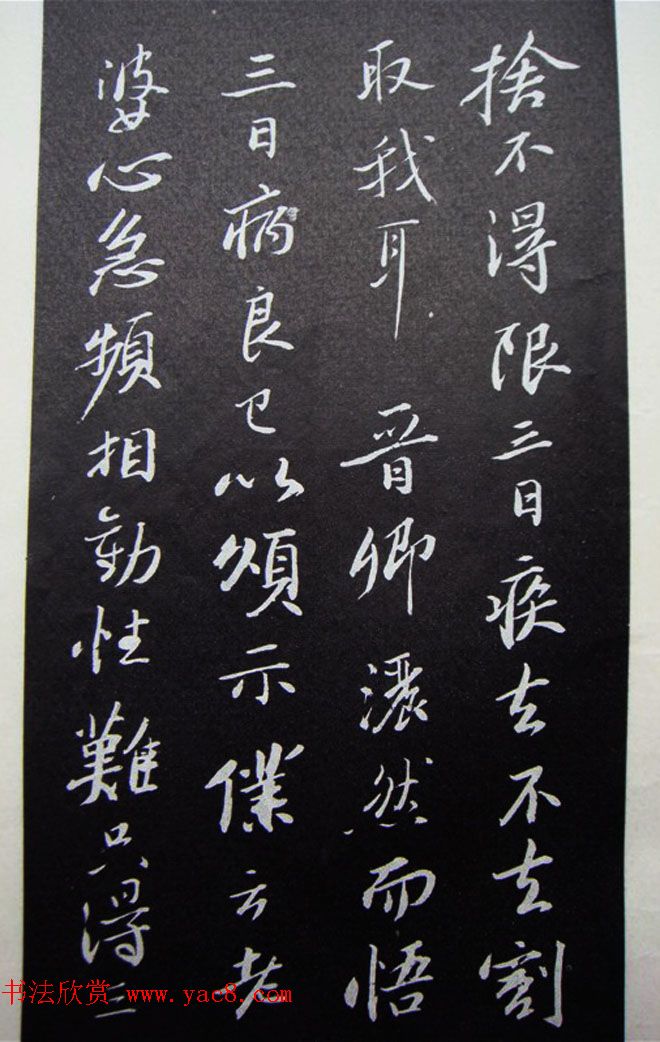 捨不得限三日疾去不去割
取我耳 晋卿灑然而悟
三日病良已以頌示僕云老
婆心急頻相勸性難只得三
书法欣赏 www.yac8.com